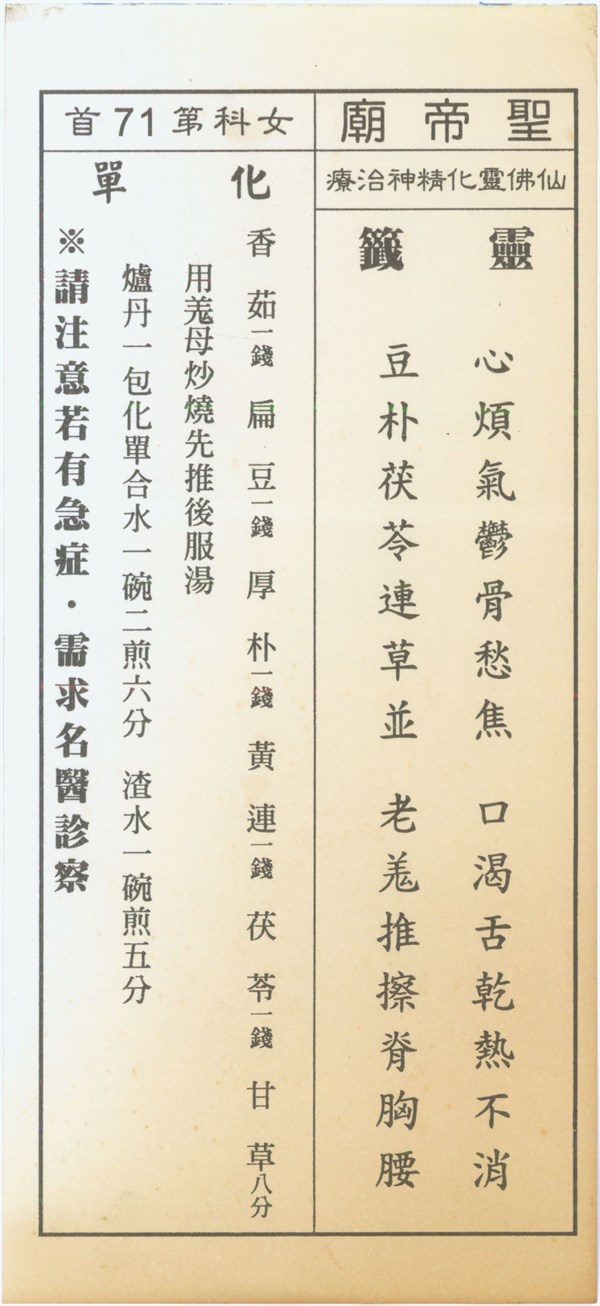 聖帝廟
仙佛靈化精神治療
靈籤
心煩氣鬱骨愁焦　口渴舌乾熱不消
豆朴茯苓連草並　老羗推擦脊胸腰
女科第71首
化單
香茹一錢　扁豆一錢　厚朴一錢　黃連一錢　茯苓一錢　甘草八分
用羗母炒燒先推後服湯
爐丹一包化單合水一碗二煎六分　渣水一碗煎五分
※請注意若有急症・需求名醫診察